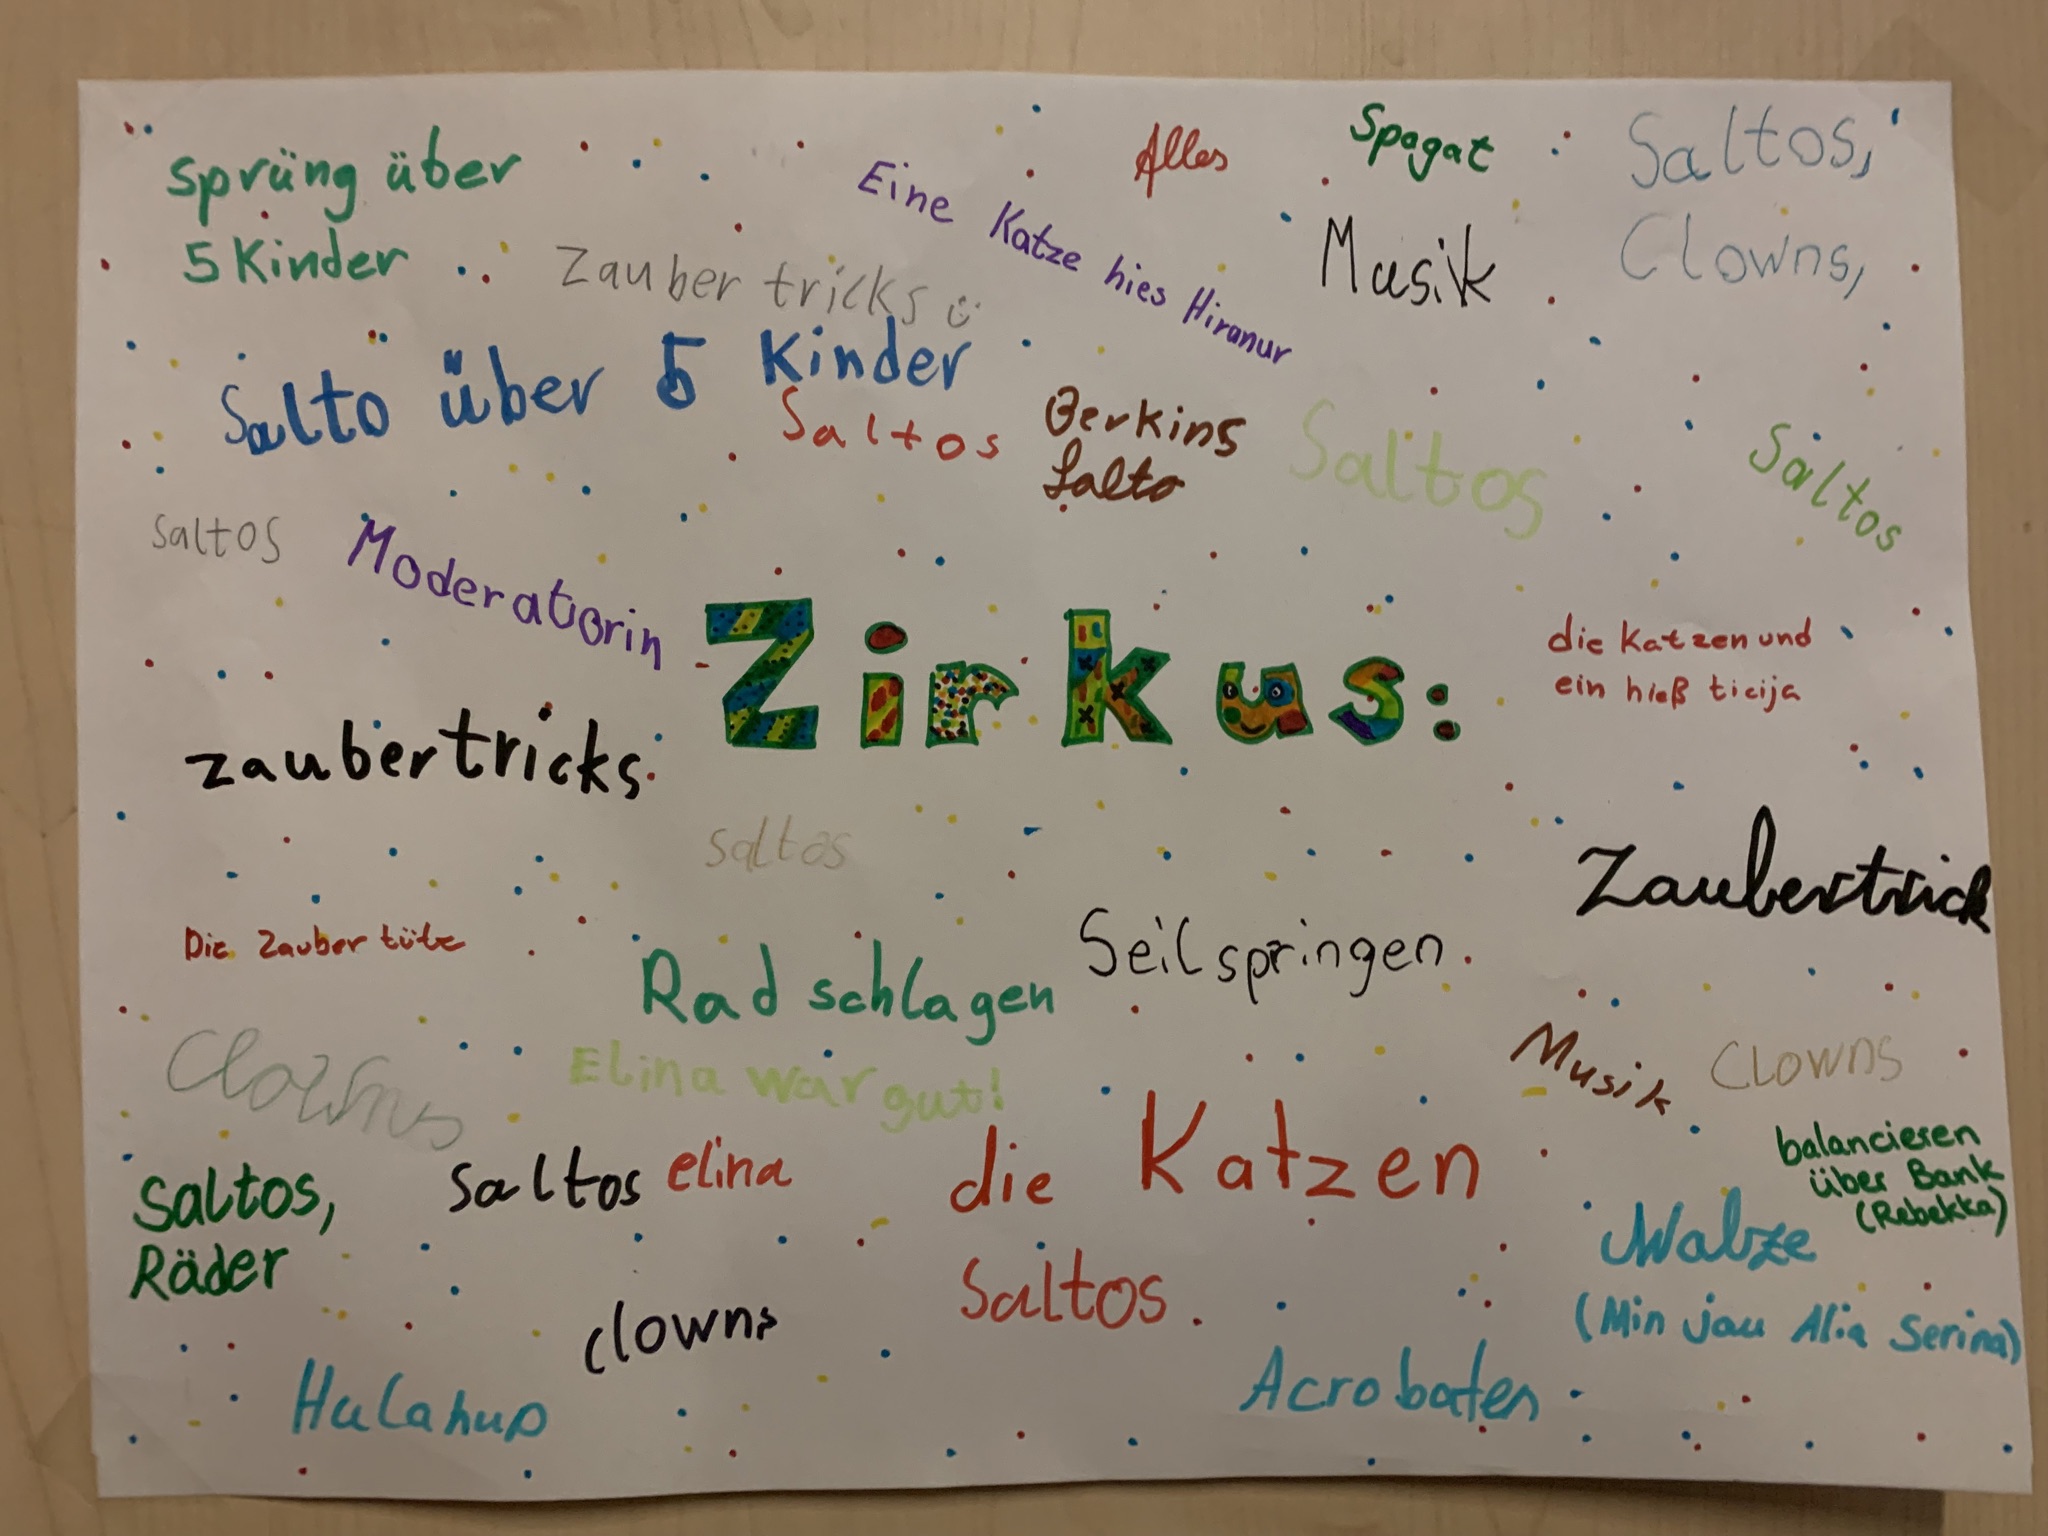 sprüng über
5 Kinder
Zauber tricks
Eine Katze hies Hiranur
Alles
Spagat
Musik
Saltos,
Clowns,
Salto über 5 Kinder
Saltos
Berkins
Salto
Saltos
Saltos
saltos
Moderatorin
Zirkus:
die Katzen und
ein hieß ticija
zaubertricks
saltos
Zaubertrick
Die Zauber tüte
Rad schlagen
Seilspringen.
Clowns
Elina war gut!
Musik
Clowns
balancieren
über Bank
(Rebekka)
Saltos,
Räder
Saltos
elina
die Katzen
Saltos.
Walze
(Min jau Alia Serina)
clowns
Hulahup
Acrobaten